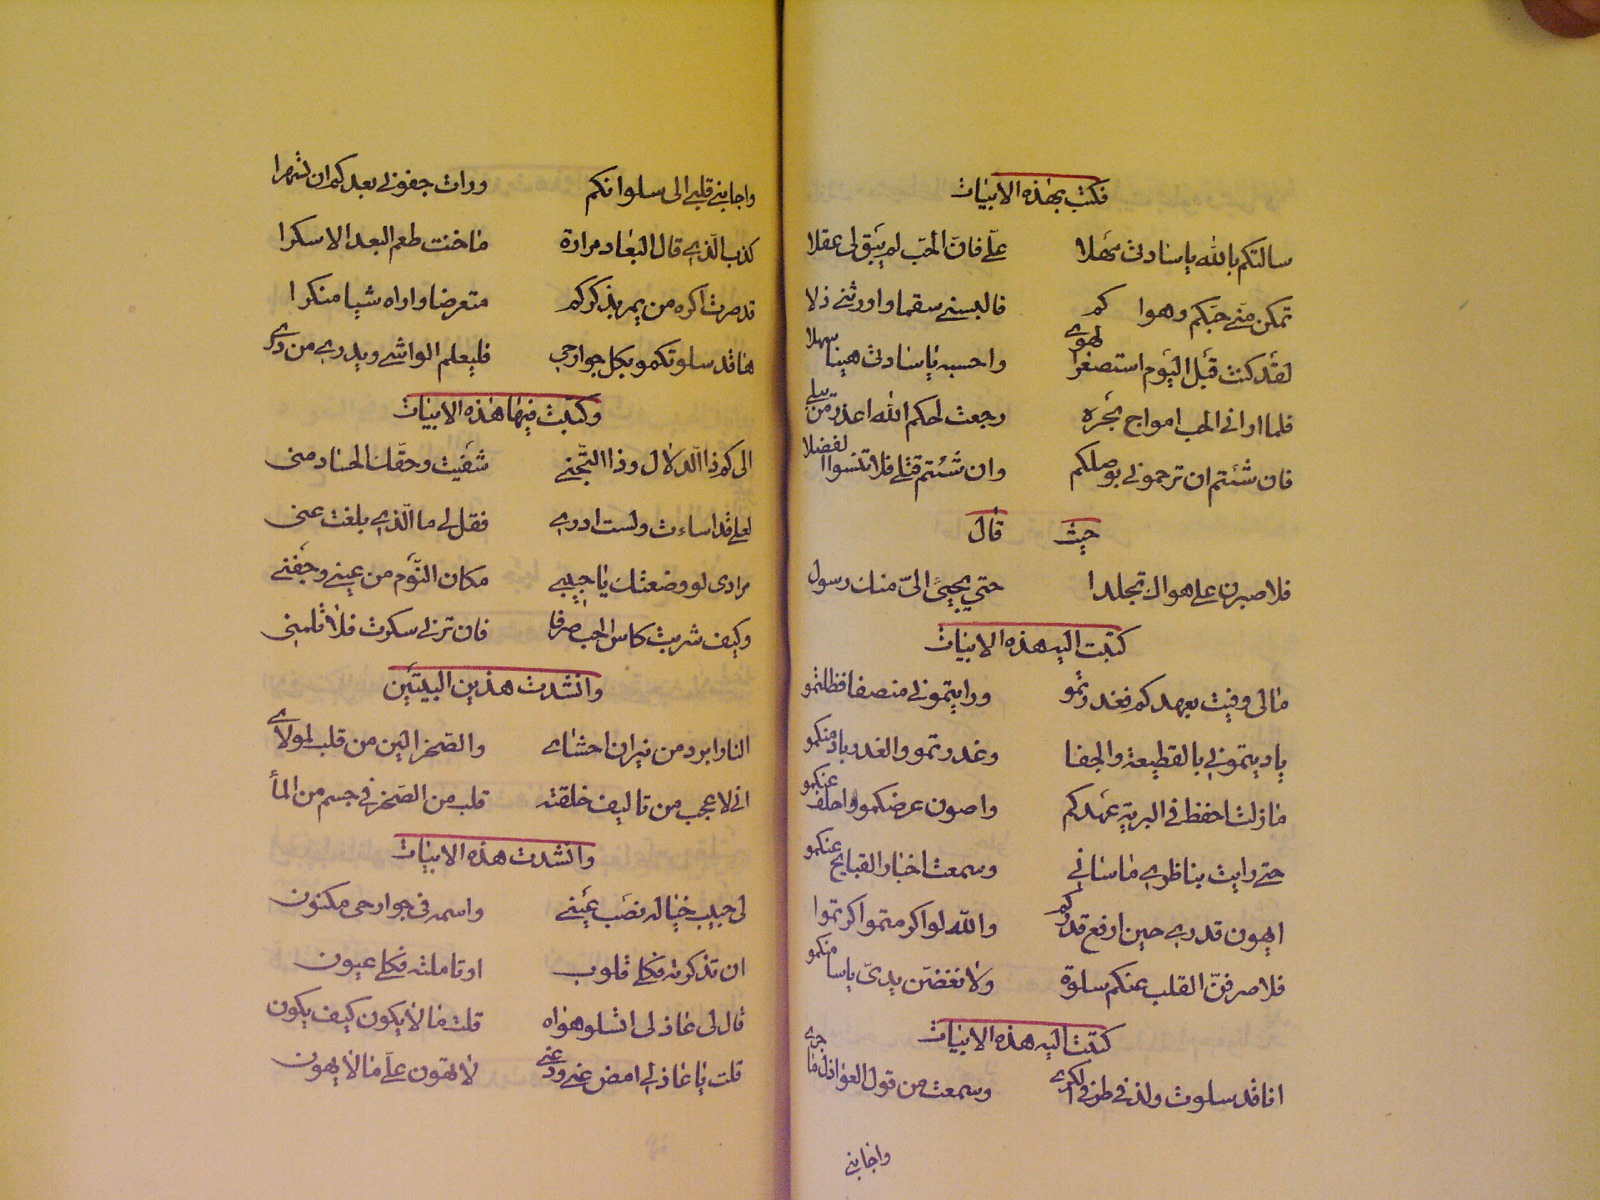 فكتب بهذه الابيات
سالتكم بالله يا سادتى مهلا علىّ فانّ الحب لم يبق لى عقلا
تمكن منى حبّكم وهواكم فالبسنى سقما واورثنى ذلا
لقد كنت قبل اليوم استصغر الهوى واحسبه يا سادتى هينا سهلا
فلما ارانى الحب امواج بحره رجعت لحكم الله اعذر من يبلى
فان شئتم ان ترحمونى بوصلكم وان شئتم قتلى فلا تنسوا الفضلا
حيث قال
فلاصبرن على هواك تجلدا حتى يجيئ الىّ منك رسول
كتبت اليه هذه الابيات
مالى وفيت بعهدكم فغدرتمو ورايتمونى منصفا فظلمتمو
باديتمونى بالقطيعة والجفا وغدرتمو والغدر باد منكمو
مازلت احفظ فى البرية عهدكم واصون عرضكمو واحلف عنكمو
حتى رايت بناظرى ماساءنى وسمعت اخبار القبايح عنكمو
ايهون قدرى حين ارفع قدركم والله لو اكرمتموا اكرمتموا
فلاصرفنّ القلب عنكم سلوة ولانفضن يدىّ ياسا منكمو
كتبت اليه هذه الابيات
انا قد سلوت ولذ فى طرفى الكرى وسمعت من قول العواذل ما جرى
واجابنى
واجابنى قلبى الى سلوانكم ورات جفونى بعدكم ان تسهرا
كذب الذى قال البعاد مرارة ماخنت طعم البعد الا سكرا
قد صرت اكره من يمر بذكركم متعرضا واراه شيا منكرا
ها قد سلوتكمو بكل جوارحى فليعلم الواشى ويدرى من درى
وكتبت فيها هذه الابيات
الى كم ذا الدلال وذا التجنى شفيت وحقك الحساد منى
لعلى قد اساءت ولست ادرى فقل لى ما الذى بلغت عنى
مرادى لو وضعتك يا حبيبى مكان النوم من عينى وجفنى
وكيف شربت كاس الحب صرفا فان ترنى سكرت فلا تلمنى
وانشدت هذين البيتين
النار ابرد من نيران احشاى والصخر الين من قلب لمولاى
انى لاعجب من تاليف خلقته قلب من الصخر فى جسم من الماأ
وانشدت هذه الابيات
لى حبيب خياله نصب عينى واسمه فى جوارحى مكنون
ان تذكرته فكلى قلوب او تاملته فكلى عيون
قال لى عاذلى اتسلو هواه قلت مالا يكون كيف يكون
قلت يا عاذلى امض عنى ودعنى لا تهون علىّ مالا يهون